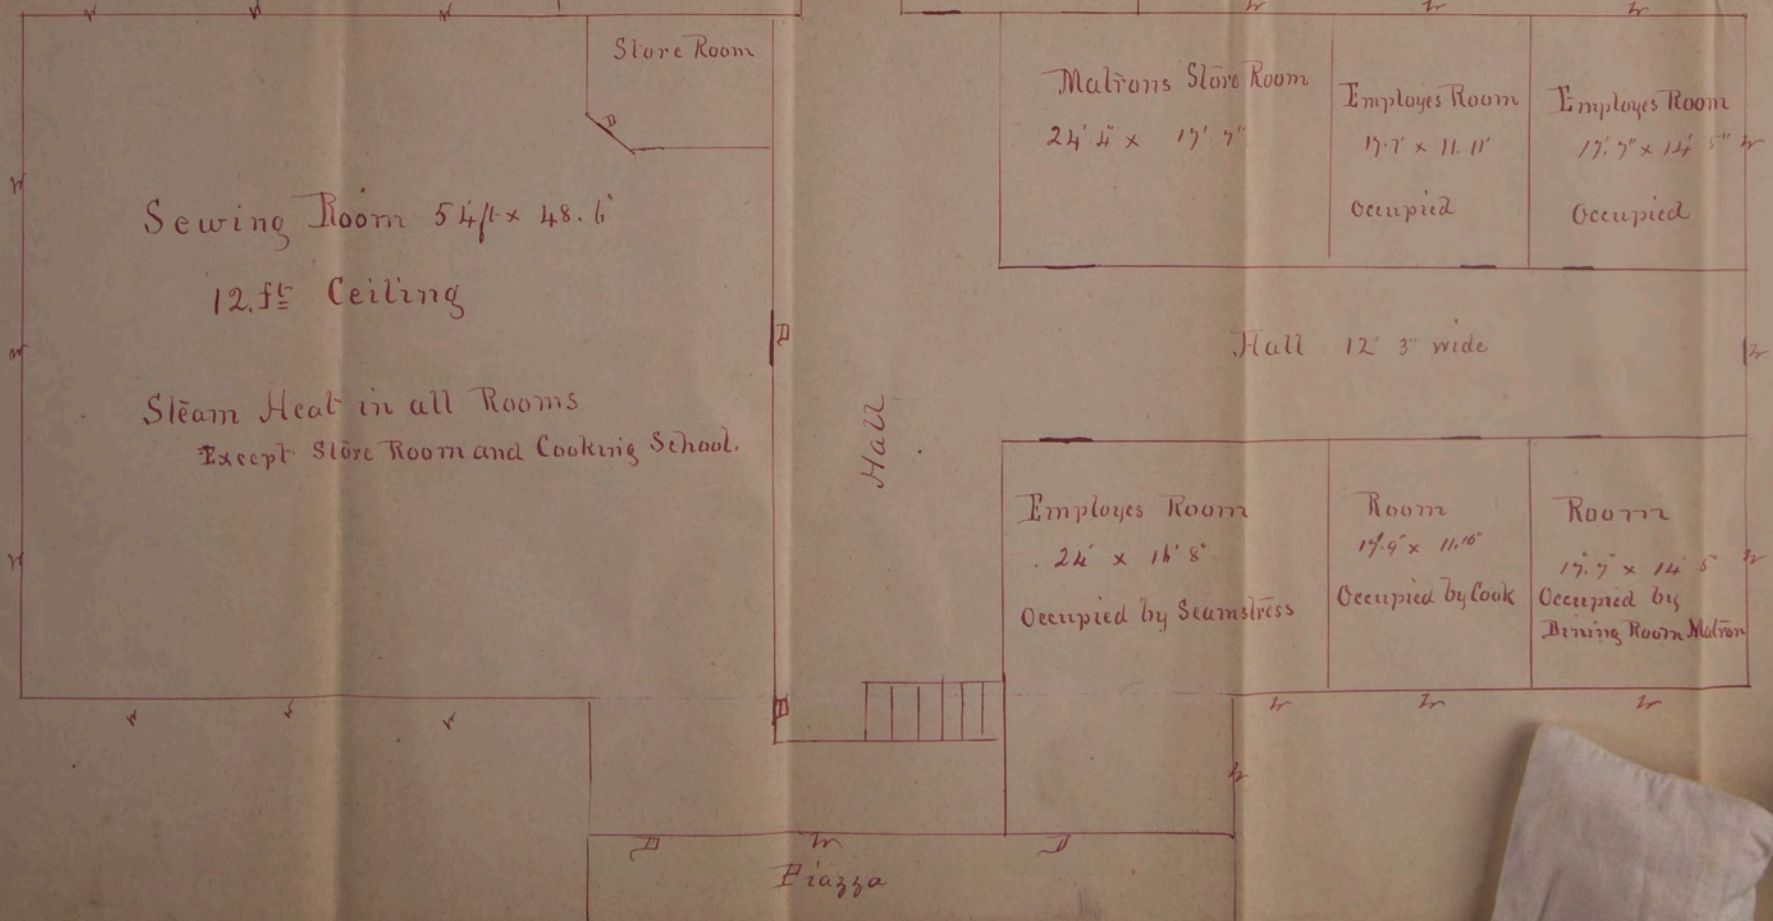 Store Room
Sewing Room 54ft x 48.6"
12.ft Ceiling
Steam Heat in all Rooms
Except Store Room and Cooking School.
Hall
Matrons Store Room
24' 4" x 17' 7"
Employes Room
17.7' x 11.11'
Occupied
Employes Room
17'.7" x 14' 5"
Occupied
Hall 12' 3" wide
Employes Room
24' x 16' 8"
Occupied by Seamstress
Room
17'.9" x 11.10"
Occupied by Cook
Room
17.7" x 14' 5
Occupied by
Dining Room Matron
Piazza